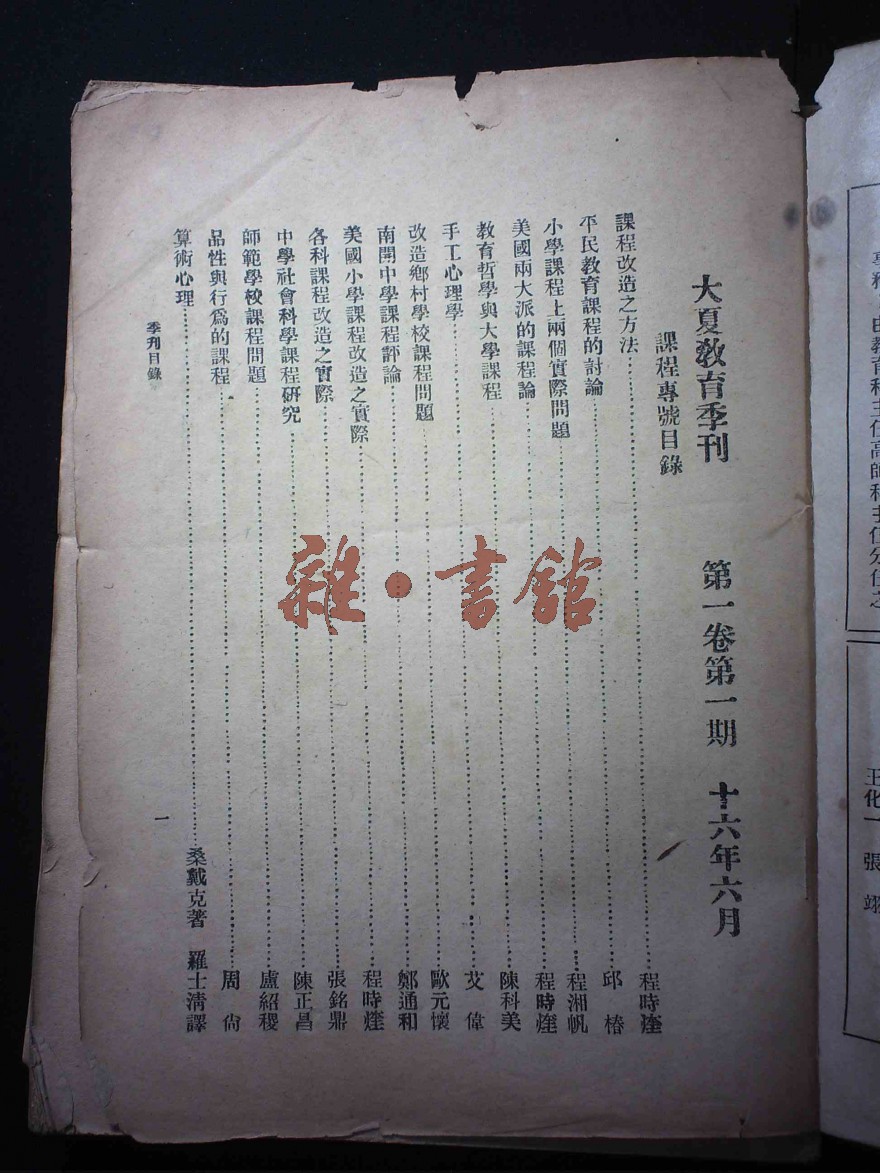 大夏教育季刊　第一卷第一期　十六年六月
課程專號目錄
課程改造之方法……程時煃
平民教育課程的討論……邱　椿
小學課程上兩個實際問題……程湘帆
美國兩大派的課程論……程時煃
教育哲學與大學課程……陳科美
手工心理學……艾　偉
改造鄉村學校課程問題……歐元懷
南開中學課程評論……鄭通和
美國小學課程改造之實際……程時煃
各科課程改造之實際……張銘鼎
中學社會科學課程研究……陳正昌
師範學校課程問題……盧紹稷
品性與行爲的課程……周　尙
算術心理……桑戴克著　羅士清譯
季刊目錄
一
雜·書館
由教育科主任高師科主任分任之
王化一　張